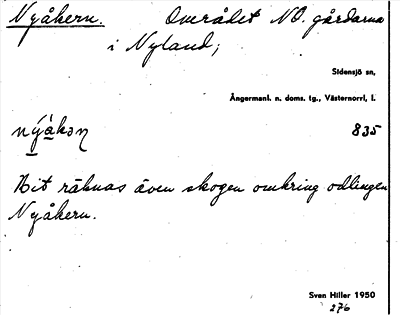 Nyåkern. Området NO. gårdarna
i Nyland;
Sidensjö sn,
Ångermanl. n. doms. tg., Västernorrl. l.
nýàkən 835
Hit räknas även skogen omkring odlingen
Nyåkern.
Sven Hiller 1950
276